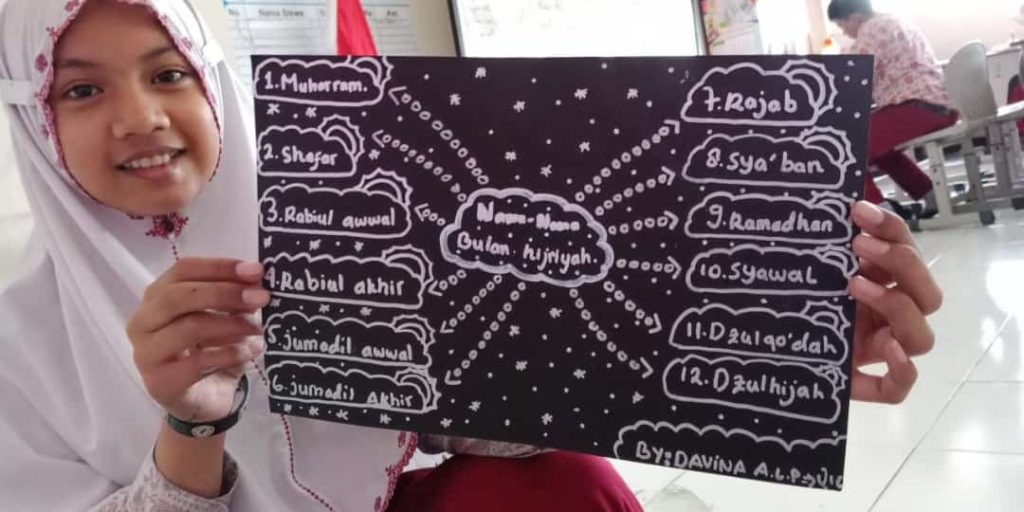 No. Nama Siswa
Nama-Nama
Bulan hijriyah.
1. Muharram.
2. Shafar
3. Rabiul awwal
4. Rabiul akhir
5. jumadil awwal
6. jumadil Akhir
7. Rajab
8. Sya'ban
9. Ramadhan
10. Syawal
11. Dzulqo'dah
12. Dzulhijah
BY: DAVINA A.L.P